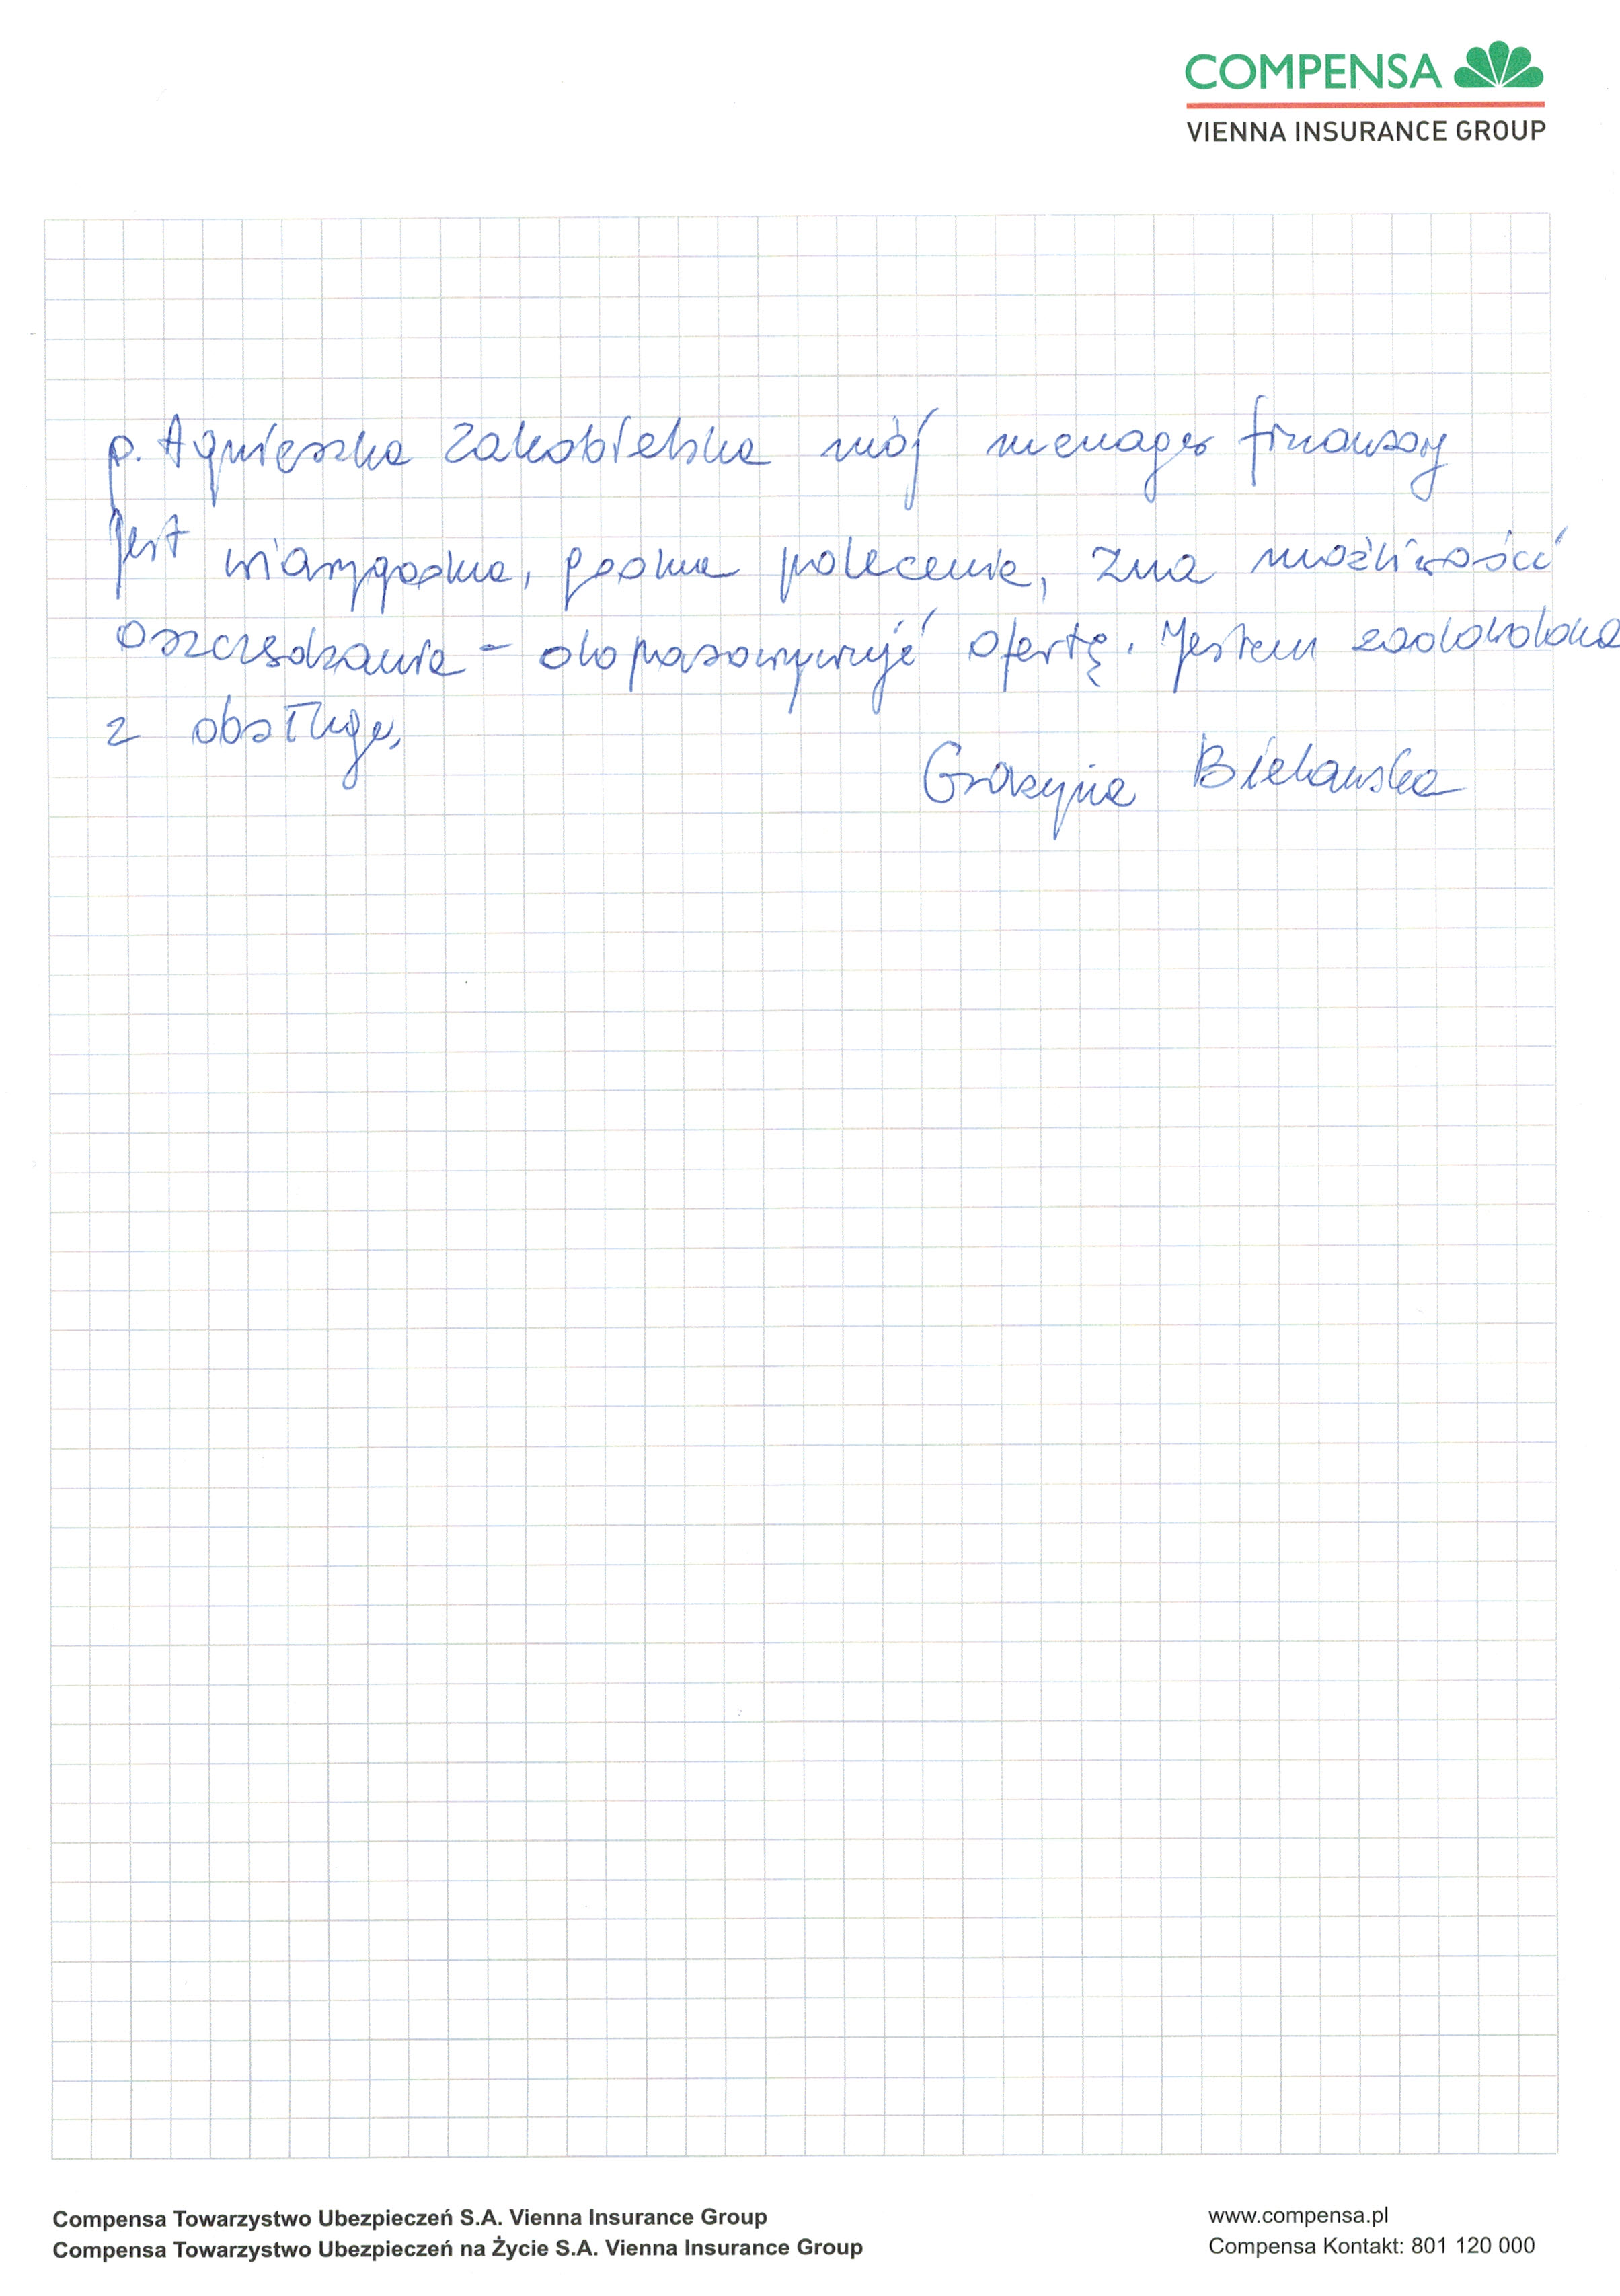 COMPENSA
VIENNA INSURANCE GROUP
p. Agnieszka Zakobielska mój menager finansowy
jest wiarygodna, godna polecenia, zna możliwości
oszczędzania - dopasowywuje ofertę. Jestem zadowolona
z obsługi.
Grażyna Bielawska
Compensa Towarzystwo Ubezpieczeń S.A. Vienna Insurance Group
www.compensa.pl
Compensa Towarzystwo Ubezpieczeń na Życie S.A. Vienna Insurance Group
Compensa Kontakt: 801 120 000